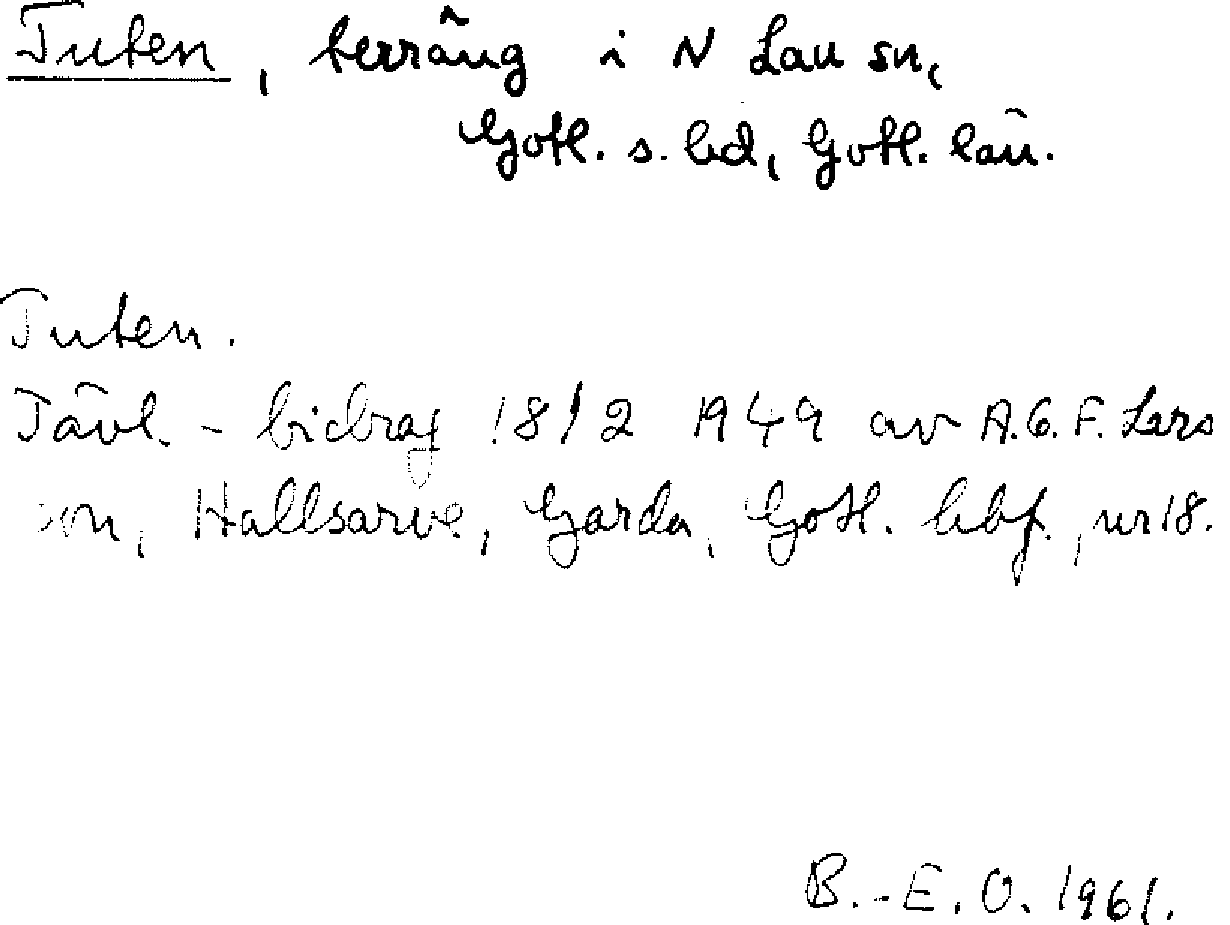 Tuten, terräng i N Lau sn,
Gotl. s. hd, Gotl. län.
Tuten.
Tävl. - bidrag 18/2 1949 av A.G.F. Lars
son, Hallsarve, Garda, Gotl. hbf., nr 18.
B.-E. O. 1961.